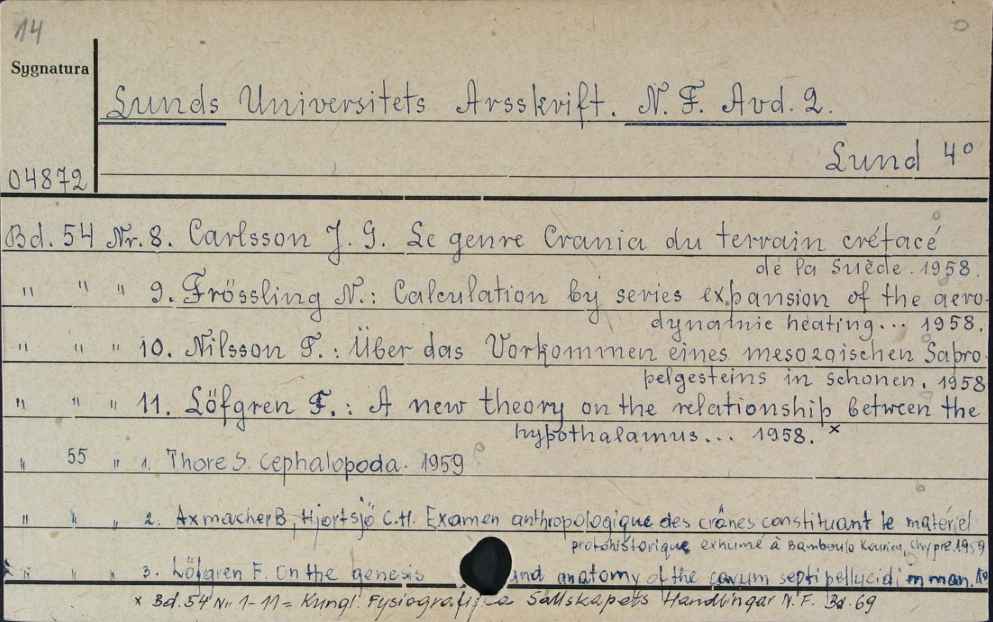 14
Sygnatura
Lunds Universitets Arsskrift. N. F. Avd. 2.
Lund 4°
04872
Bd. 54 Nr. 8. Carlsson J. G. Le genre Crania du terrain crétacé
de la Suède. 1958.
" " " 9. Frössling N.: Calculation by series expansion of the aero-
dynamic heating... 1958.
" " " 10. Nilsson T.: Über das Vorkommen eines mesozoischen Sapro-
pelgesteins in Schonen. 1958
" " " 11. Löfgren F.: A new theory on the relationship between the
hypothalamus... 1958. x
" 55 " 1. Thore S. Cephalopoda. 1959
" " " 2. Axmacher B, Hjortsjö C.H. Examen anthropologique des crânes constituant le matériel
protohistorique exhumé à Bamboula Kourion, Chypre 1959
" " " 3. Löfgren F. On the genesis and anatomy of the cavum septi pellucidi in man.
x Bd. 54 Nr 1-11 = Kungl. Fysiografi Sällskapets Handlingar N.F. Bd. 69